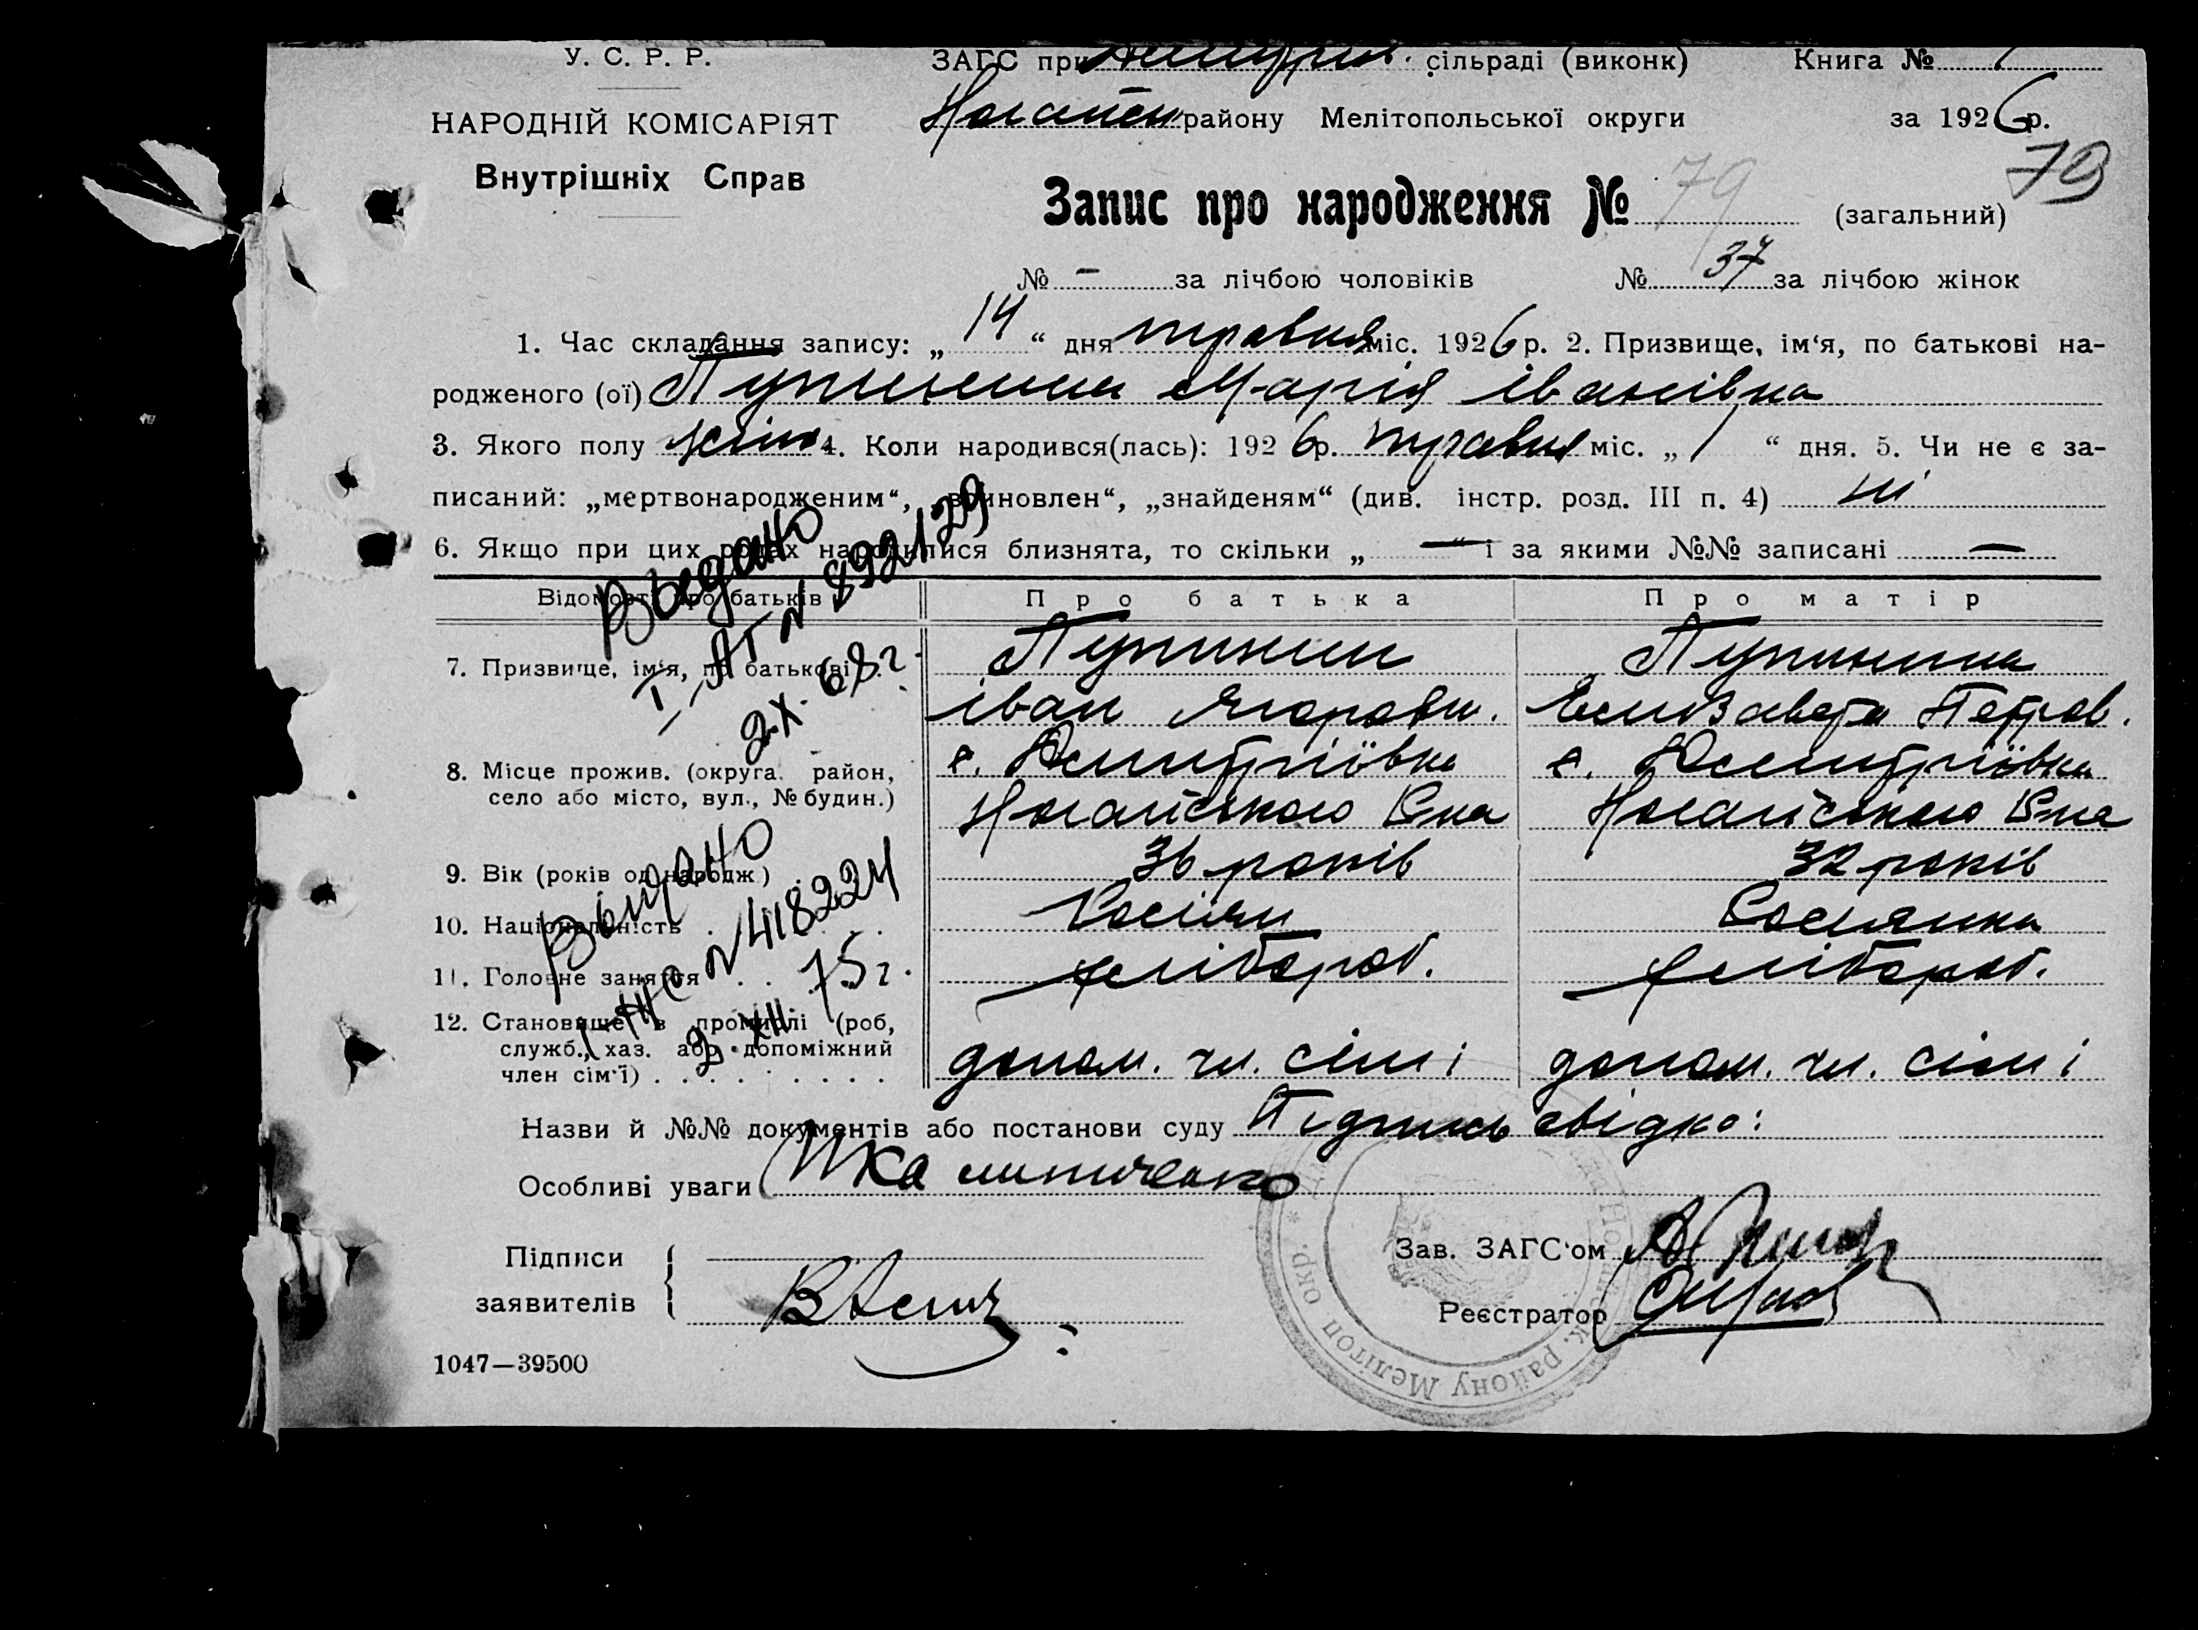 У. С. Р. Р.
ЗАГС при Дмитрів. сільраді (виконк) Книга № 1
НАРОДНІЙ КОМІСАРІЯТ
Ногайськ району Мелітопольської округи за 1926 р.
Внутрішніх Справ
79
Запис про народження № 79 (загальний)
№ — за лічбою чоловіків № 37 за лічбою жінок
1. Час складання запису: „ 14 “ дня травня міс. 1926 р. 2. Призвище, ім‘я, по батькові на-
родженого (ої) Пупинин Марія Іванівна
3. Якого полу жіноч 4. Коли народився(лась): 1926 р. травня міс. „ 1 “ дня. 5. Чи не є за-
писаний: „мертвонародженим“, „вчиновлен“, „знайденям“ (див. інстр. розд. III п. 4) ні
6. Якщо при цих родах народилися близнята, то скільки „ — “ і за якими №№ записані —
Выдано
I-АГ № 892129
2.X. 68г.
Відомості про батьків Про батька Про матір
7. Призвище, ім‘я, по батькові Пупинин Пупинина
Іван Ягорови. Єлизавета Петров.
8. Місце прожив. (округа, район, с. Дмитріївка с. Дмитріївка
село або місто, вул., № будин.) Ногайського Р-на Ногайського Р-на
9. Вік (років од народж) 36 років 32 років
10. Національність Росіян Росіянка
11. Головне заняття хлібороб. хлібороб.
12. Становище в промислі (роб,
служб., хаз. або допоміжний допом. чл. сімі допом. чл. сімі
член сім‘ї)
Выдано
I-ЖС № 418224
2.XII. 75г.
Назви й №№ документів або постанови суду Підпись свідка:
Особливі уваги
Підписи
заявителів
Зав. ЗАГС‘ом
Реєстратор
району Мелітоп окр. *
1047—39500